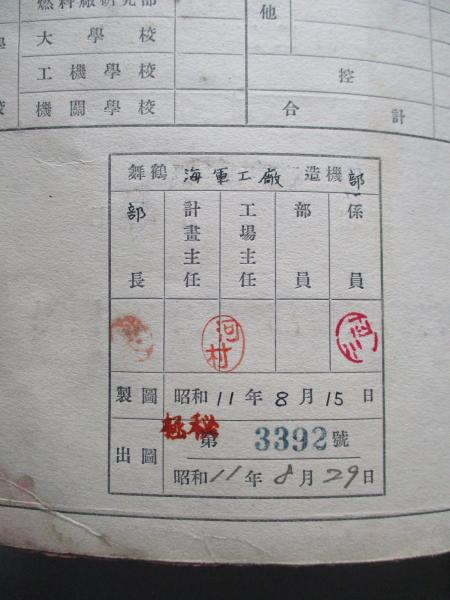 燃料廠研究部
大學校
工機學校
機關學校
校
他
控
合計
舞鶴 海軍工廠 造機部
部長 計畫主任 工場主任 部員 係員
河村
製圖 昭和11年8月15日
極秘
出圖 第3392號
昭和11年8月29日